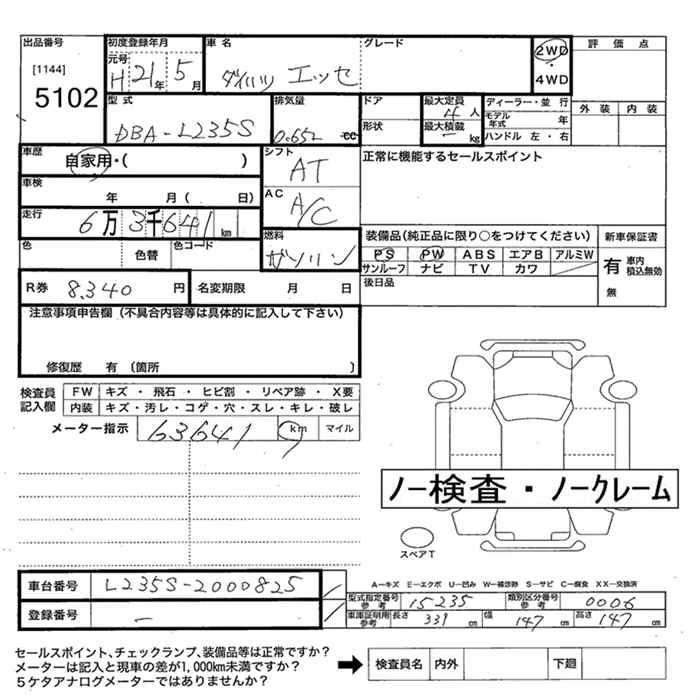 出品番号 初度登録年月 車名 グレード 2WD 評価点
[1144] 元号 H 21年 5月 ダイハツ エッセ 4WD
5102
型式 排気量 ドア 最大定員 4人 ディーラー・並行 外装 内装
DBA-L235S 0.65L cc 形状 最大積載 - kg モデル年式 年
ハンドル 左・右
車歴 自家用・( ) シフト AT 正常に機能するセールスポイント
車検 年 月( 日) AC A/C
走行 6万3千641km
色 色替 色コード 燃料 ガソリン 装備品(純正品に限り○をつけてください) 新車保証書
PS PW ABS エアB アルミW 有 車内積込無効
サンルーフ ナビ TV カワ
R券 8,340円 名変期限 月 日 後日品 無
注意事項申告欄(不具合内容等は具体的に記入して下さい)
修復歴 有(箇所 )
検査員記入欄 FW キズ・飛石・ヒビ割・リペア跡・X要
内装 キズ・汚レ・コゲ・穴・スレ・キレ・破レ
メーター指示 63641 km マイル
ノー検査・ノークレーム
スペアT
車台番号 L235S-2000825
A-キズ E-エクボ U-凹み W-補修跡 S-サビ C-腐食 XX-交換済
型式指定番号 参考 15235 類別区分番号 参考 0006
登録番号 - 車庫証明用 参考 長さ 331cm 幅 147cm 高さ 147cm
セールスポイント、チェックランプ、装備品等は正常ですか?
メーターは記入と現車の差が1,000km未満ですか?
5ケタアナログメーターではありませんか?
検査員名 内外 下廻